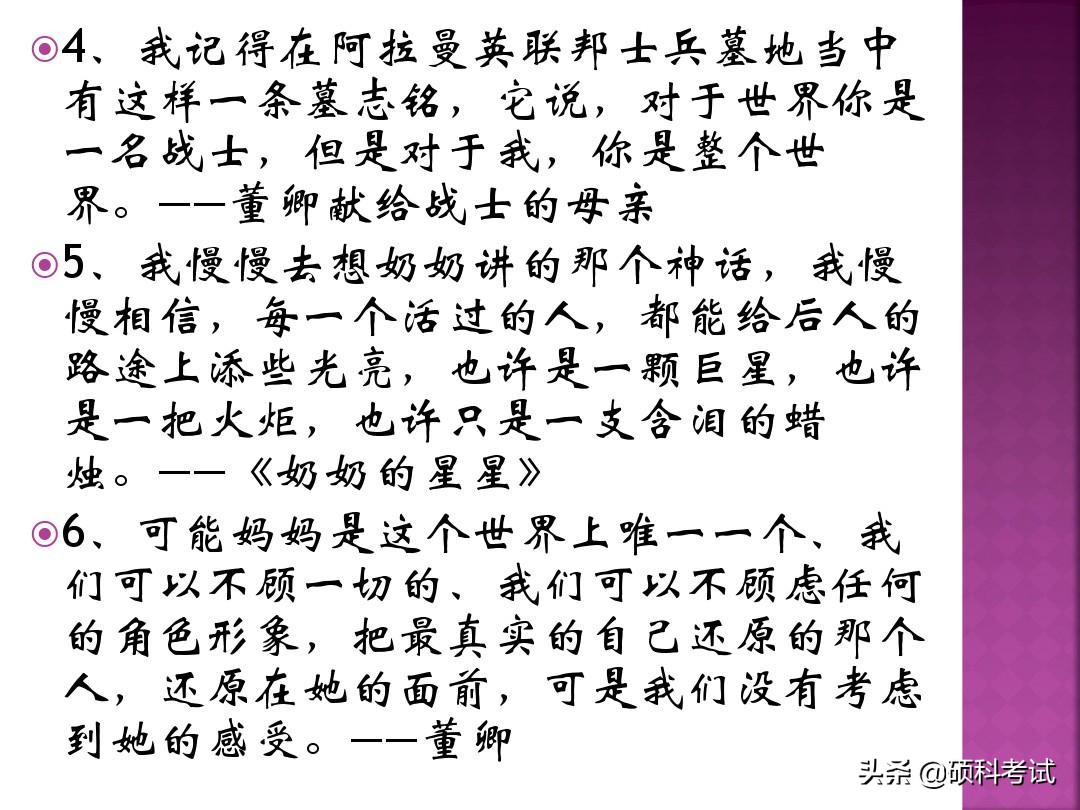 4、我记得在阿拉曼英联邦士兵墓地当中
有这样一条墓志铭，它说，对于世界你是
一名战士，但是对于我，你是整个世
界。——董卿献给战士的母亲
5、我慢慢去想奶奶讲的那个神话，我慢
慢相信，每一个活过的人，都能给后人的
路途上添些光亮，也许是一颗巨星，也许
是一把火炬，也许只是一支含泪的蜡
烛。——《奶奶的星星》
6、可能妈妈是这个世界上唯一一个、我
们可以不顾一切的、我们可以不顾虑任何
的角色形象，把最真实的自己还原的那个
人，还原在她的面前，可是我们没有考虑
到她的感受。——董卿
头条 @硕科考试